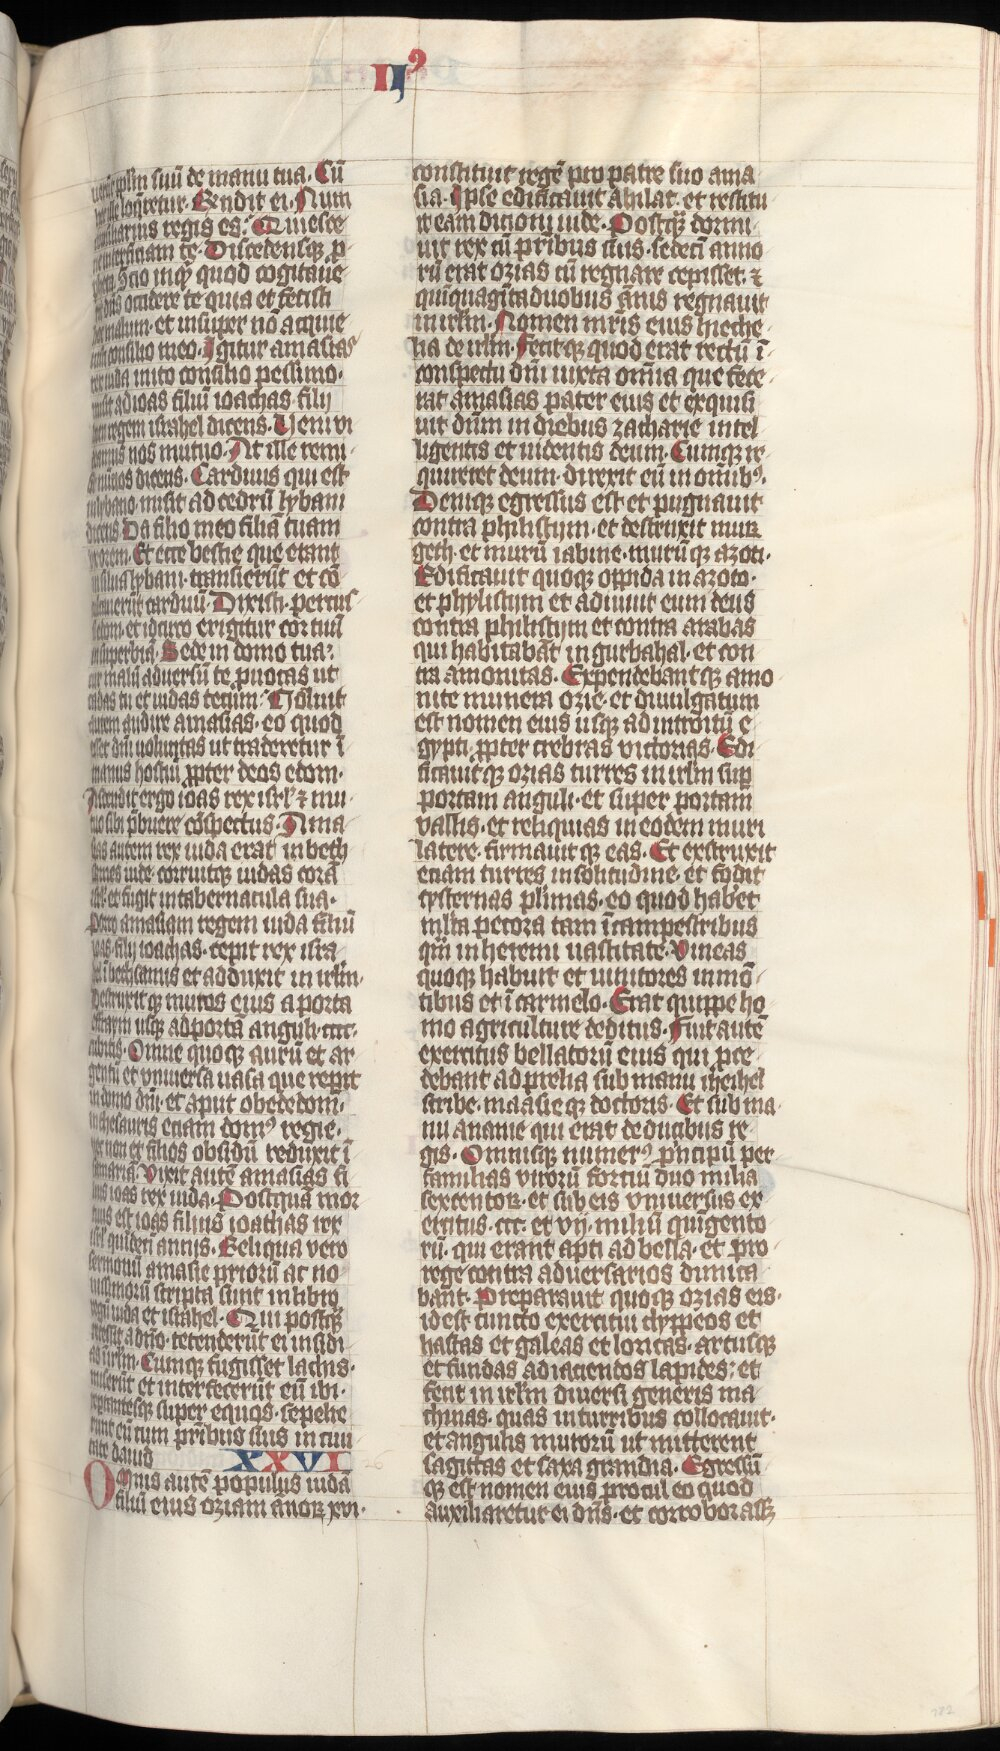 IJꝰ
uerūt pplm suū de manu tua. Cū
hec ille loqretur. Rendit ei. Num
consiliarius regis es? Quiesce
ne interficiam te. Discedensq̨ p̱
pheta. Scio inqͥ quod cogitaue
rit dn̄s occidere te quia et fecisti
hoc malum. et insuper nō acquie
uisti consilio meo. Igitur amasias
rex iuda inito consilio pessimo.
misit ad ioas filiū ioachas filij
hieu regem israhel dicens. Veni vi
deamus nos mutuo. At ille remi
sit nūcios dicens. Carduus qui est
in lybano. misit ad cedrū lybani
dicens. Da filio meo filiā tuam
vxorem. Et ecce bestie que erant
in silua lybani. transierūt et cō
culcauerūt carduū. Dixisti. percussi
edom. et idcirco erigitur cor tuū
in superbiā. Sede in domo tua.
cur malū adversū te ꝓuocas ut
cadas tu et iudas tecum? Noluit
autem audire amasias. eo quod
esset dn̄i uoluntas ut traderetur ī
manus hostiū ꝓpter deos edom.
Ascendit ergo ioas rex isrl̄. ⁊ mu
tuo sibi p̄buere cōspectus. Ama
sias autem rex iuda erat in beth
sames iude. corruitq̨ iudas corā
isrl̄. et fugit in tabernacula sua.
Porro amasiam regem iuda filiū
ioas. filij ioachas. cepit rex isra
hel ī bethsamis et adduxit in irl̄m.
Destruxit q̨ muros eius a porta
effraym usq̨ ad portā anguli. cccc.
cubitis. Omne quoq̨ aurū et ar
gentū et vniuersa uasa que repit
in domo dn̄i. et aput obededom.
in thesauris etiam domꝰ regie.
nec non et filios obsidū reduxit ī
samaria. Vixit autē amasias fi
lius ioas rex iuda. Postquā mor
tuus est ioas filius ioachas rex
isrl̄ quideci annis. Reliqua vero
sermonū amasie priorū ac no
uissimorū scripta sunt in libro
regū iuda et israhel. Qui postq̄
recessit a dn̄o. tetenderūt ei insidi
as ī irl̄m. Cumq̨ fugisset lachis.
miserūt et interfecerūt eū ibi.
reportantesq̨ super equos. sepelie
runt eū cum pr̄ibus suis in ciui
tate dauid XXVI
Omnis autē populus iuda
filiū eius oziam anoꝝ xvi.
constituit regē pro patre suo ama
sia. Ipse edificauit ahilat. et restitu
it eam dicioni iude. Postq̄ dormi
uit rex cū pr̄ibus suis. sedeci anno
rū erat ozias cū regnare cepisset. ⁊
quīquagīta duobus ānis regnauit
in irl̄m. Nomen mr̄is eius hieche
lia de irl̄m. Fecit q̨ quod erat rectū ī
conspectu dn̄i iuxta om̄ia que fece
rat amasias pater eius et exquisi
uit dn̄m in diebus zacharie intel
ligentis et uidentis deum. Cumq̨ re
quireret deum. direxit eū in om̄ibꝰ.
Deniq̨ egressus est et pugnauit
contra philistijm. et destruxit muꝝ
geth. et murū iabnie. murū q̨ azoti.
Edificauit quoq̨ oppida in azoto.
et phylistijm et adiuuit eum deus
contra philistijm et contra arabas
qui habitabāt in gurbahal. et con
tra amonitas. Expendebantq̨ amo
nite munera ozie. et diuulgatum
est nomen eius usq̨ ad introitū e
gypti. ꝓpter crebras victorias. Edi
ficauitq̨ ozias turres in irl̄m sup̱
portam anguli. et super portam
vallis. et reliquias in eodem muri
latere. firmauit q̨ eas. Et exstruxit
etiam turres in solitudine. et fodit
cysternas pl̄imas. eo quod haberet
ml̄ta pecora tam ī campestribus
qm̄ in heremi uastitate. Vineas
quoq̨ habuit et uinitores in mō
tibus et ī carmelo. Erat quippe ho
mo agriculture deditus. Fuit autē
exercitus bellatorū eius qui ꝓce
debant ad prelia sub manu iheihel
scribe. maasie q̨ doctoris. Et sub ma
nu ananie qui erat de ducibus re
gis. Omnisq̨ numerꝰ p̄ncipū per
familias virorū fortiū duo milia
sexcentoꝝ. et sub eis vniuersus ex
ercitus. ccc. et vij. miliū quīgento
rū. qui erant apti ad bella. et pro
rege contra adversarios dimica
bānt. Preparauit quoq̨ ozias eis.
id est cuncto exercitui clyppeos et
hastas et galeas et loricas. arcusq̨
et fundas ad iaciendos lapides. et
fecit in irl̄m diuersi generis ma
chinas. quas in turribus collocauit.
et angulis murorū ut mitterent
sagittas et saxa grandia. Egressū
q̨ est nomen eius procul eo quod
auxiliaretur ei dn̄s. et corroborasset
26